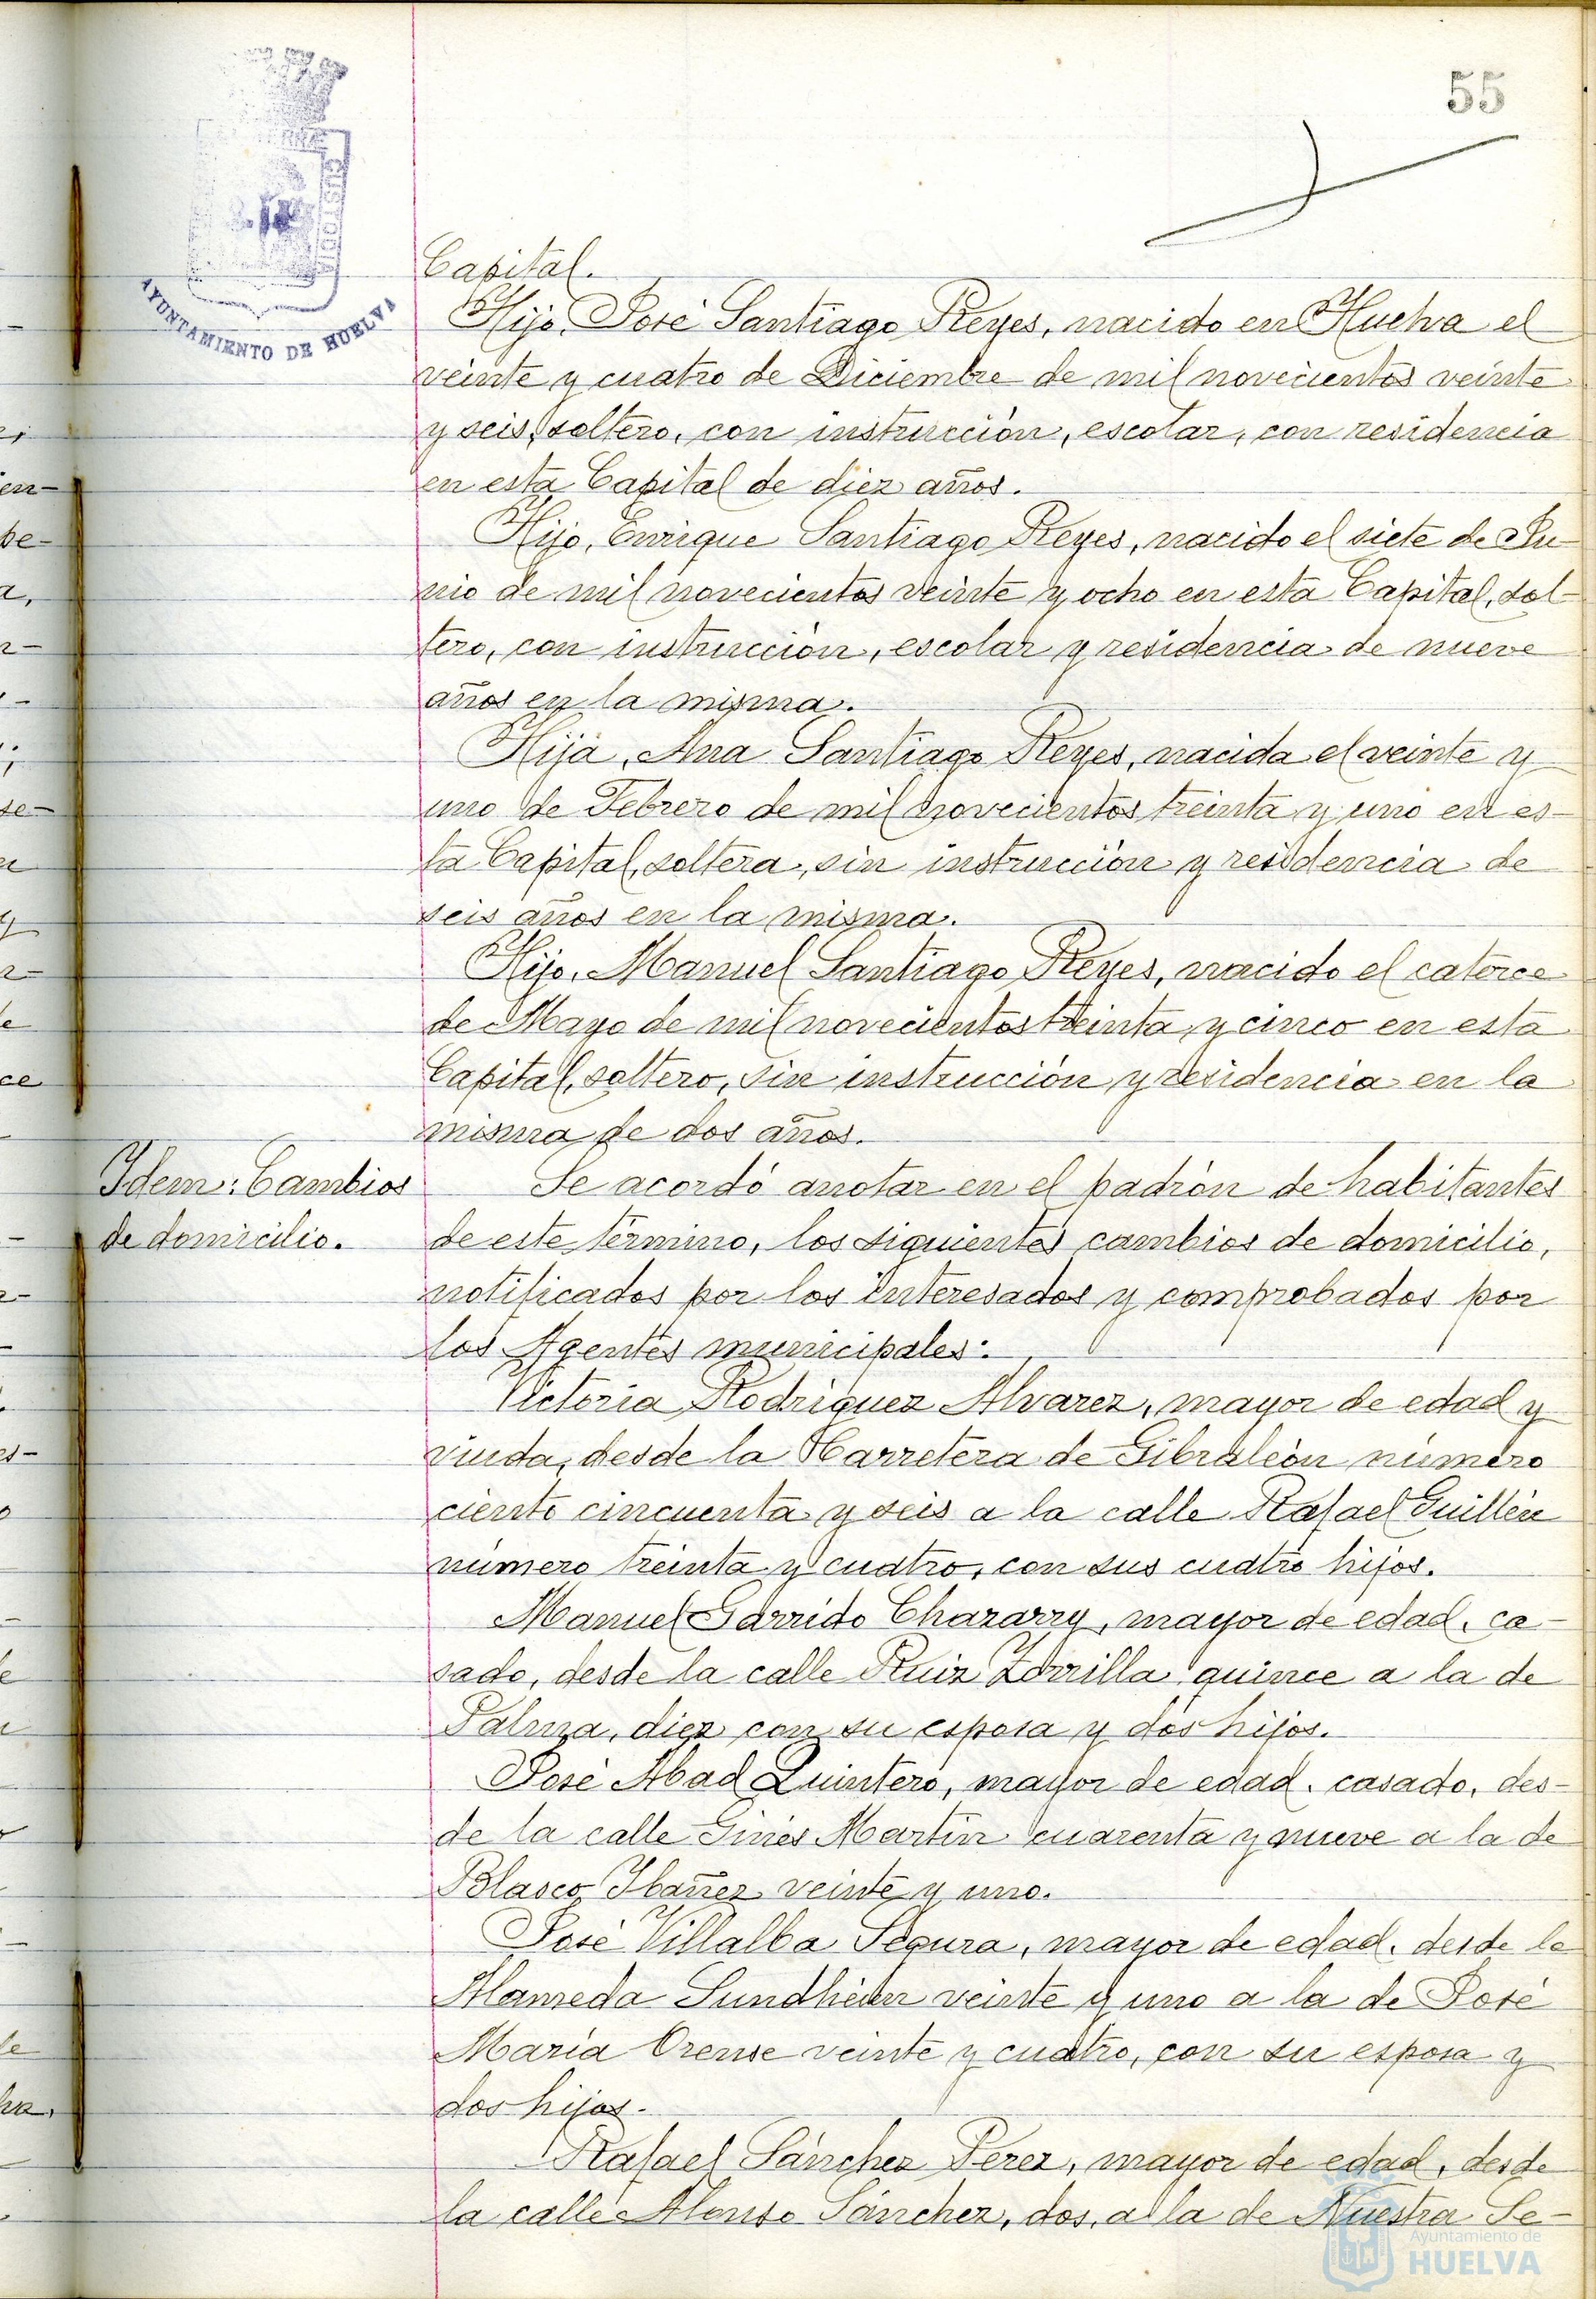 55
CUSTODIA
AYUNTAMIENTO DE HUELVA
Capital.
Hijo, José Santiago Reyes, nacido en Huelva el
veinte y cuatro de Diciembre de mil novecientos veinte
y seis, soltero, con instrucción, escolar, con residencia
en esta Capital de diez años.
Hijo, Enrique Santiago Reyes, nacido el siete de Ju-
nio de mil novecientos veinte y ocho en esta Capital, sol-
tero, con instrucción, escolar y residencia de nueve
años en la misma.
Hija, Ana Santiago Reyes, nacida el veinte y
uno de Febrero de mil novecientos treinta y uno en es-
ta Capital, soltera, sin instrucción y residencia de
seis años en la misma.
Hijo, Manuel Santiago Reyes, nacido el catorce
de Mayo de mil novecientos treinta y cinco en esta
Capital, soltero, sin instrucción y residencia en la
misma de dos años.
Idem: Cambios
de domicilio.
Se acordó anotar en el padrón de habitantes
de este término, los siguientes cambios de domicilio,
notificados por los interesados y comprobados por
los Agentes municipales:
Victoria Rodriguez Alvarez, mayor de edad y
viuda, desde la Carretera de Gibraleón número
ciento cincuenta y seis a la calle Rafael Guillén
número treinta y cuatro, con sus cuatro hijos.
Manuel Garrido Chazarry, mayor de edad, ca-
sado, desde la calle Ruiz Zorrilla quince a la de
Palma, diez con su esposa y dos hijos.
José Abad Quintero, mayor de edad, casado, des-
de la calle Ginés Martín cuarenta y nueve a la de
Blasco Ibañez veinte y uno.
José Villalba Segura, mayor de edad, desde la
Alameda Sundheim veinte y uno a la de José
María Orense veinte y cuatro, con su esposa y
dos hijos.
Rafael Sánchez Perez, mayor de edad, desde
la calle Alonso Sánchez, dos, a la de Nuestra Se-
Ayuntamiento de
HUELVA